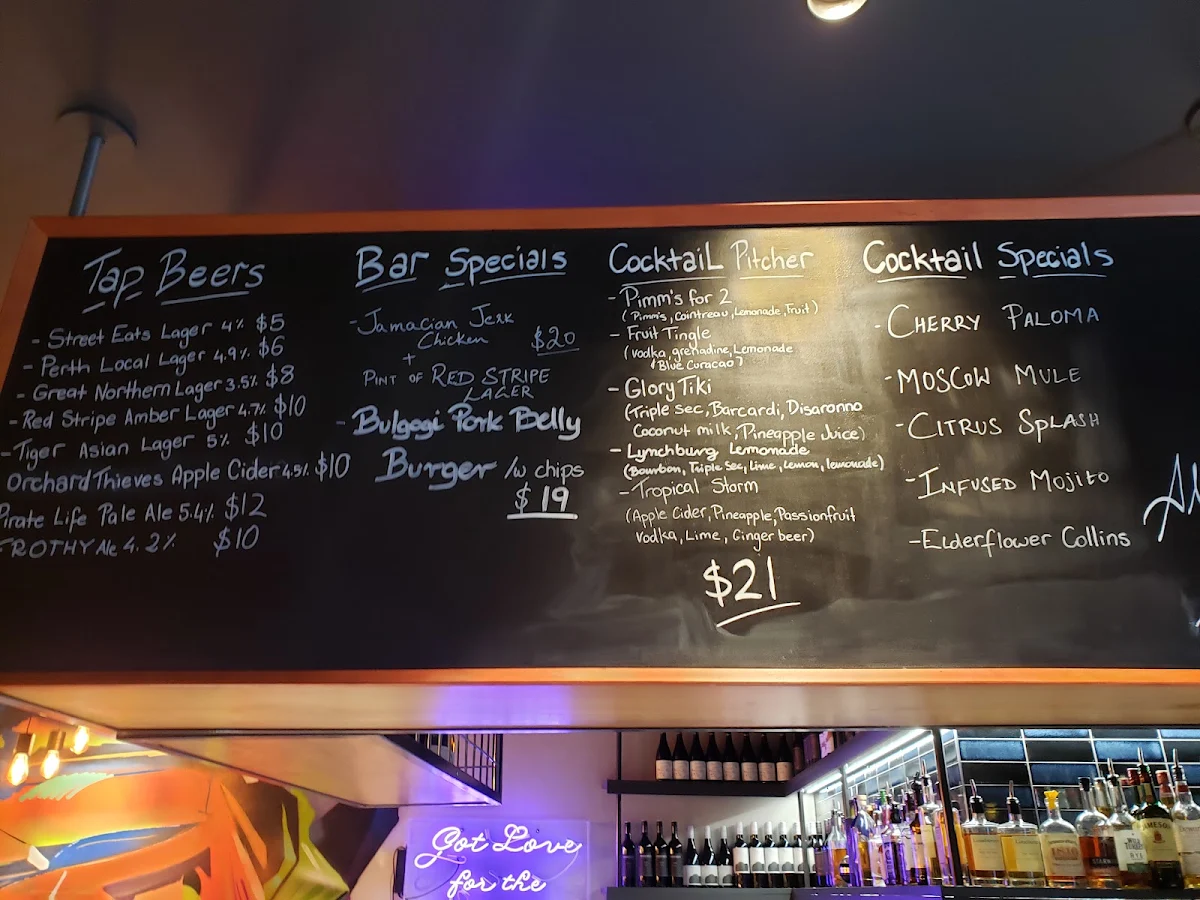 Tap Beers
- Street Eats Lager 4% $5
- Perth Local Lager 4.9% $6
- Great Northern Lager 3.5% $8
- Red Stripe Amber Lager 4.7% $10
- Tiger Asian Lager 5% $10
Orchard Thieves Apple Cider 4.5% $10
Pirate Life Pale Ale 5.4% $12
FROTHY Ale 4.2% $10
Bar Specials
- Jamacian Jerk
Chicken $20
+
PINT OF RED STRIPE
LAGER
- Bulgogi Pork Belly
Burger /w chips
$19
Cocktail Pitcher
- Pimm's for 2
(Pimm's, Cointreau, Lemonade, Fruit)
- Fruit Tingle
(Vodka, grenadine, Lemonade
Blue Curacao)
- Glory Tiki
(Triple sec, Barcardi, Disaronno
Coconut milk, Pineapple Juice)
- Lynchburg Lemonade
(Bourbon, Triple Sec, Lime, Lemon, lemonade)
- Tropical Storm
(Apple Cider, Pineapple, Passionfruit
Vodka, Lime, Ginger beer)
$21
Cocktail Specials
- CHERRY PALOMA
- MOSCOW MULE
- CITRUS SPLASH
- INFUSED MOJITO
- Elderflower Collins
Got Love
for the
JAMESON
RYE